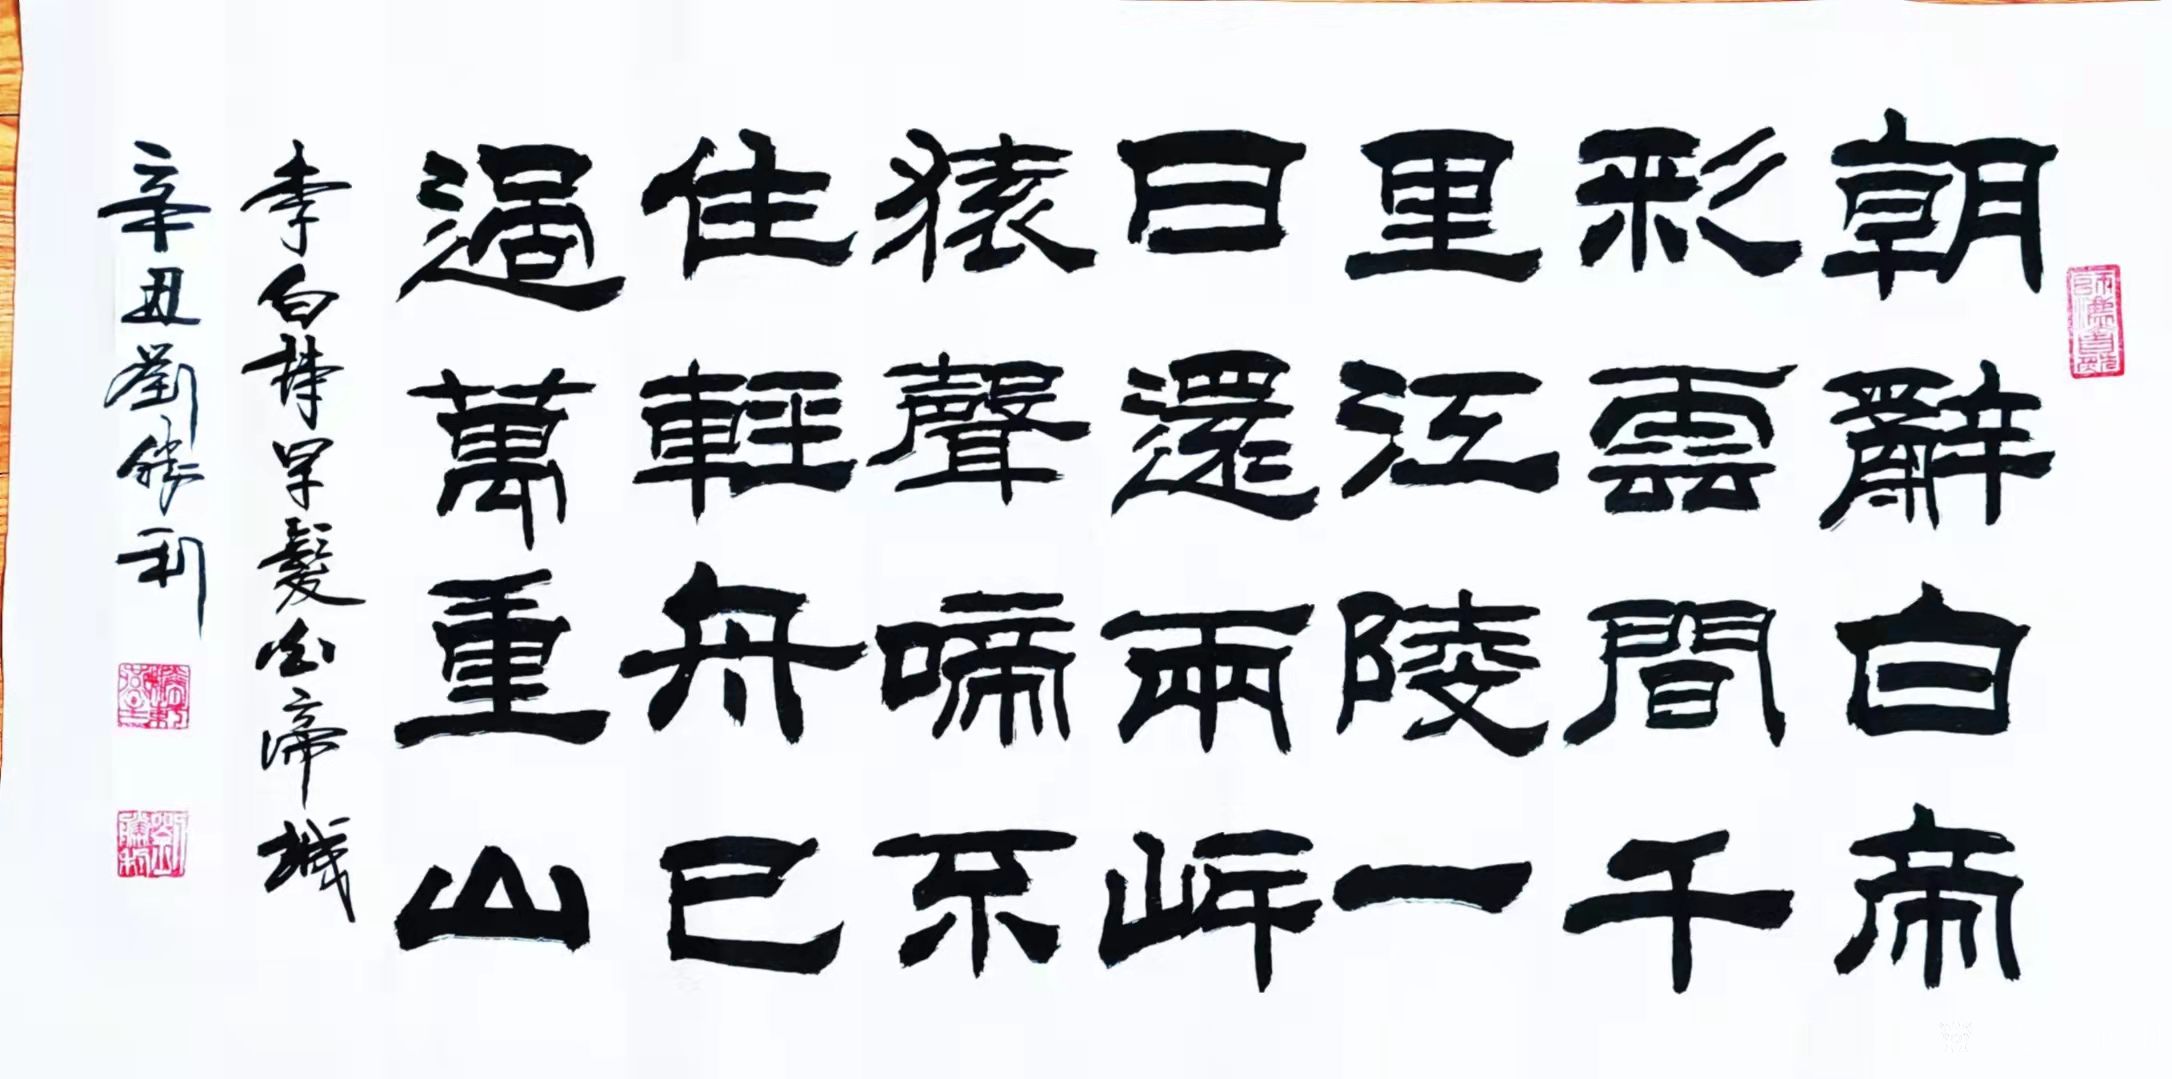 朝辭白帝
彩雲間千
里江陵一
日還兩岸
猿聲啼不
住輕舟已
過萬重山
李白詩早發白帝城
辛丑劉勝利
劉勝利